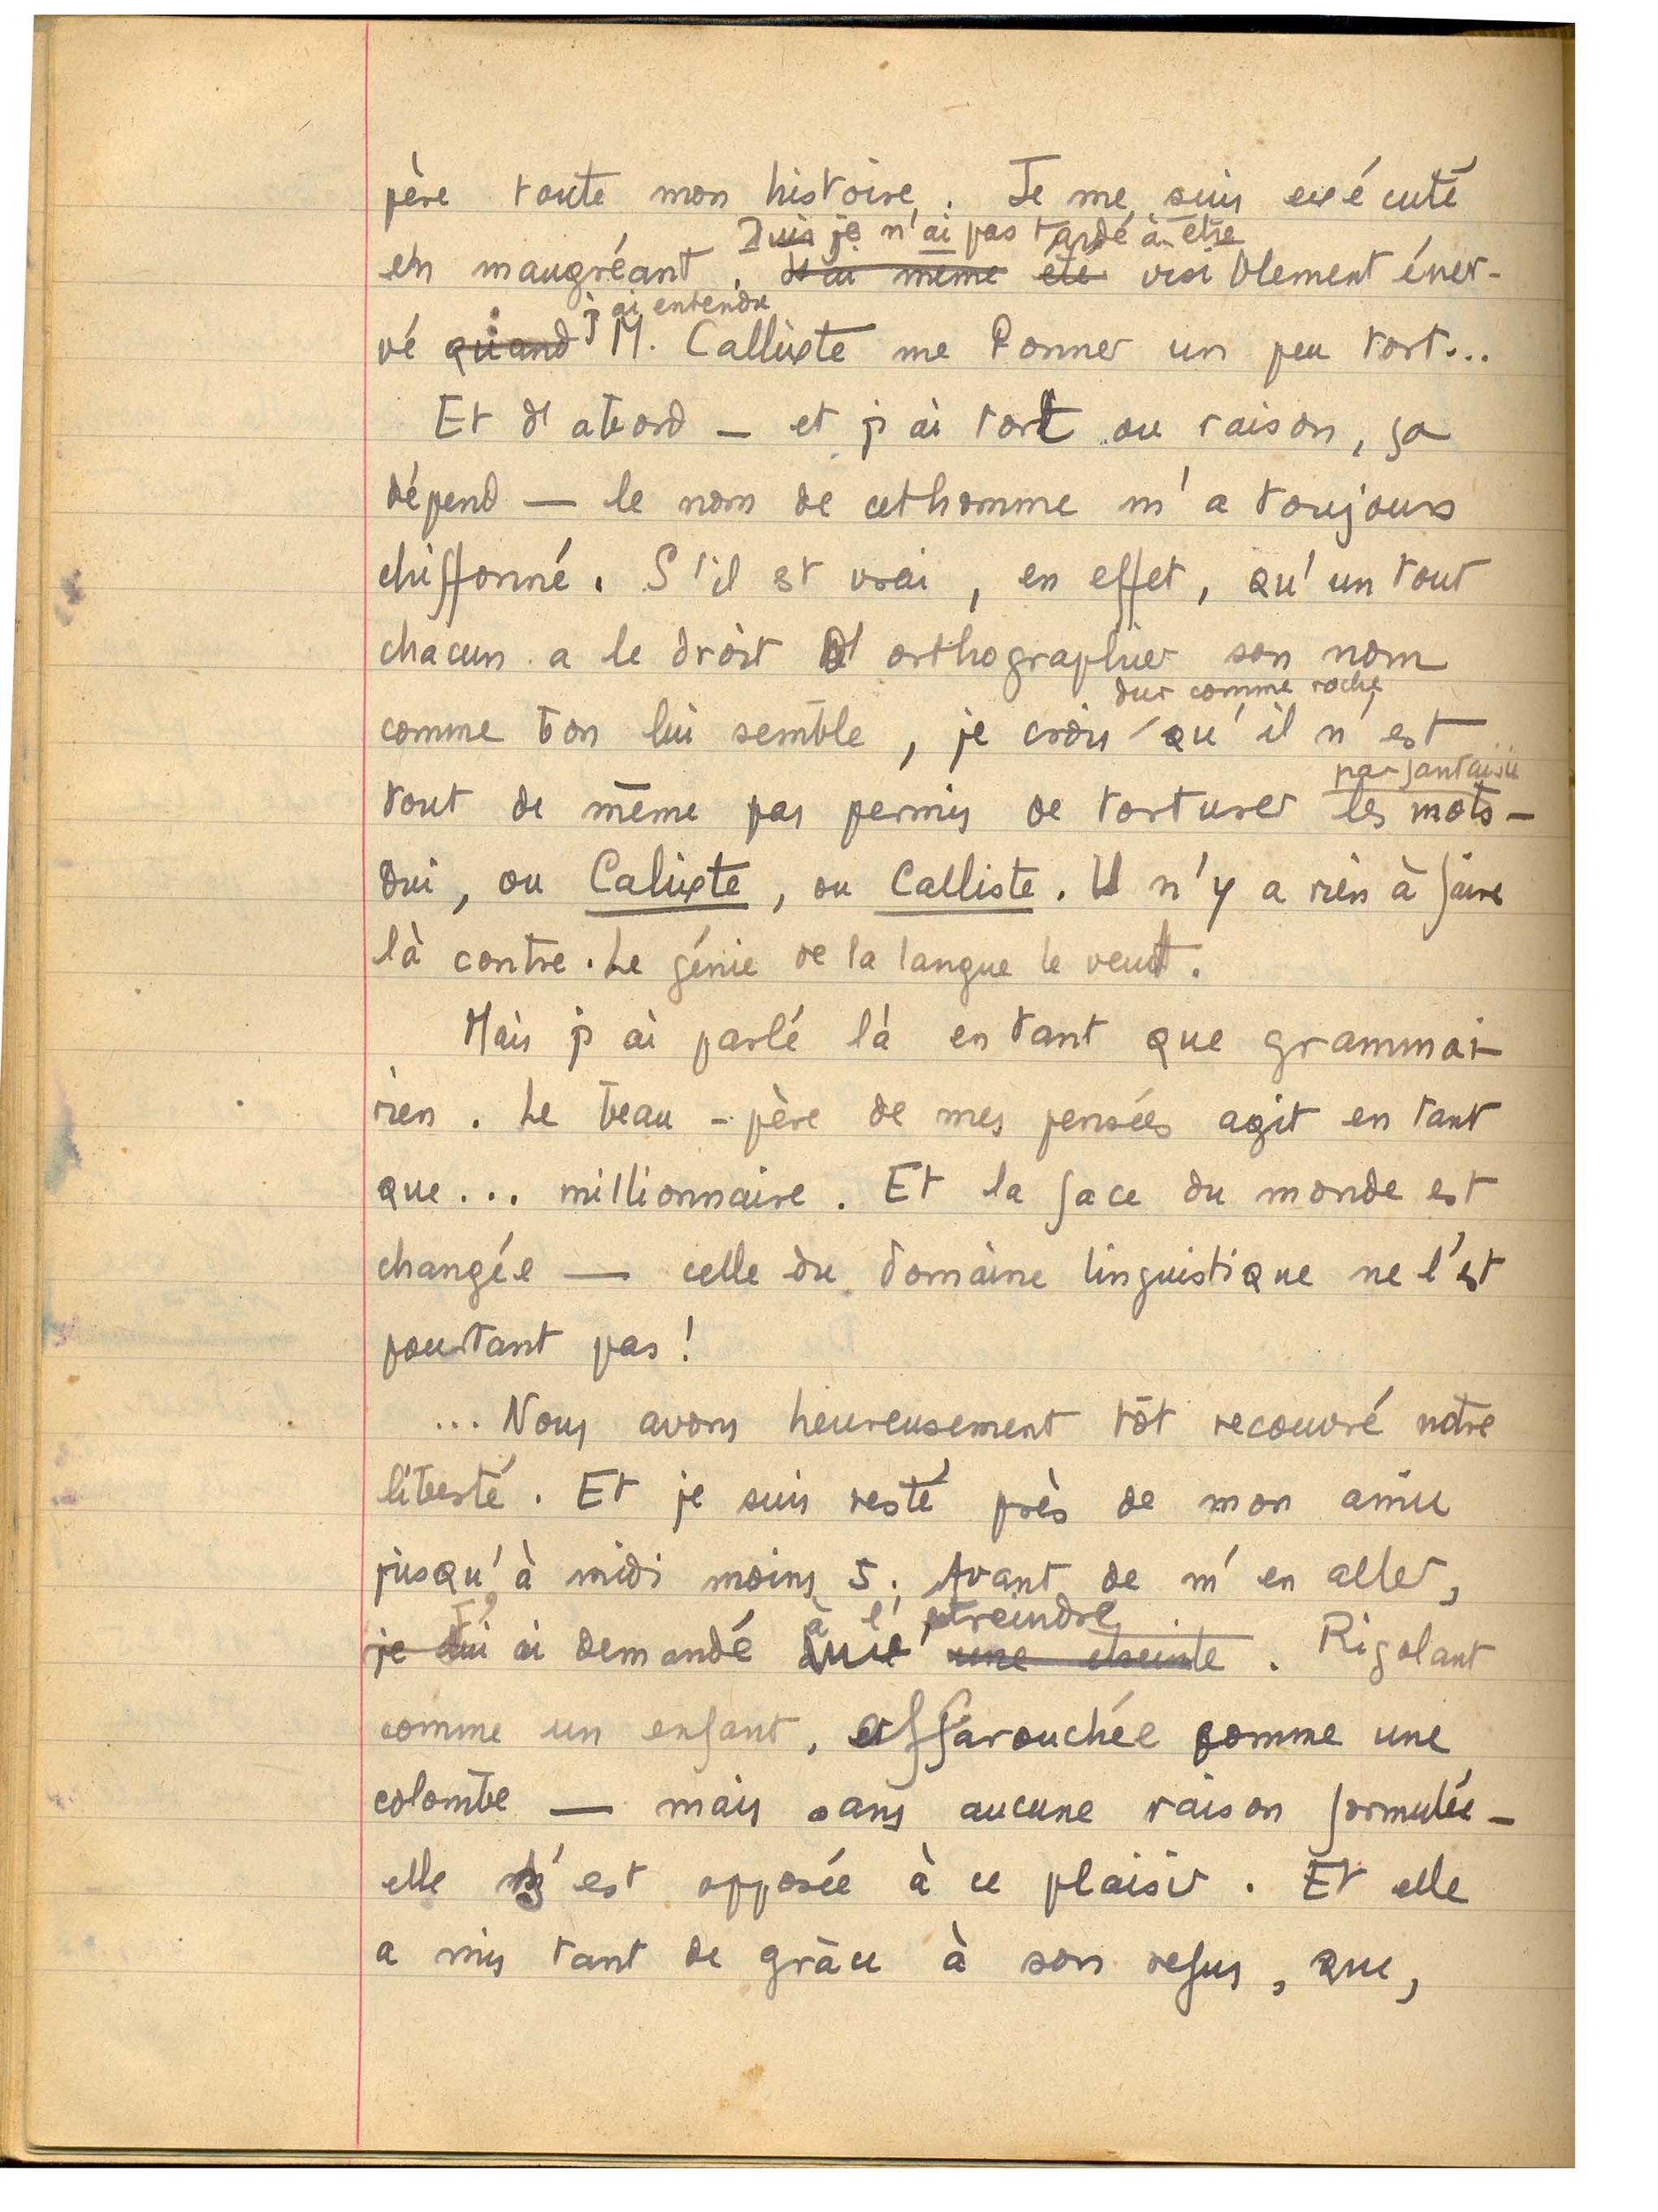 père toute mon histoire. Je me suis exécuté
Puis je n'ai pas tardé à être
en maugréant. J'ai même été visiblement éner-
j'ai entendu
vé quand M. Callixte me donner un peu tort...
Et d'abord — et j'ai tort ou raison, ça
dépend — le nom de cet homme m'a toujours
chiffonné. S'il est vrai, en effet, qu'un tout
chacun a le droit d'orthographier son nom
dur comme roche
comme bon lui semble, je crois qu'il n'est
par fantaisie
tout de même pas permis de torturer les mots —
oui, ou Calixte, ou Calliste. Il n'y a rien à faire
là contre. Le génie de la langue le veut.
Mais j'ai parlé là en tant que grammai-
rien. Le beau-père de mes pensées agit en tant
que... millionnaire. Et la face du monde est
changée — celle du domaine linguistique ne l'est
pourtant pas !
... Nous avons heureusement tôt recouvré notre
liberté. Et je suis resté près de mon amie
jusqu'à midi moins 5. Avant de m'en aller,
à l'étreindre
je lui ai demandé une étreinte. Rigolant
comme un enfant, effarouchée comme une
colombe — mais sans aucune raison formulée —
elle s'est opposée à ce plaisir. Et elle
a mis tant de grâce à son refus, que,